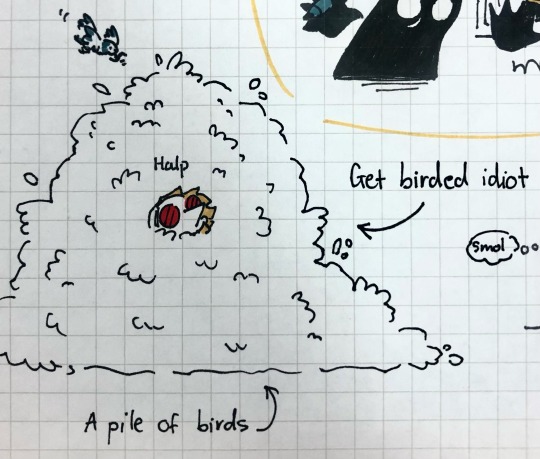 Halp
Get birded idiot
smol
A pile of birds